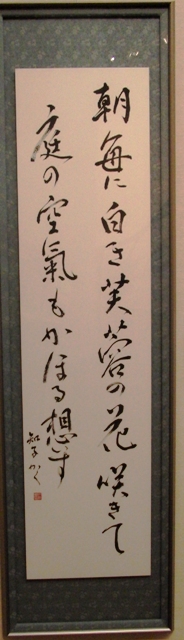 朝毎に白き芙蓉の花咲きて
庭の空氣もかほる想す
知子かく